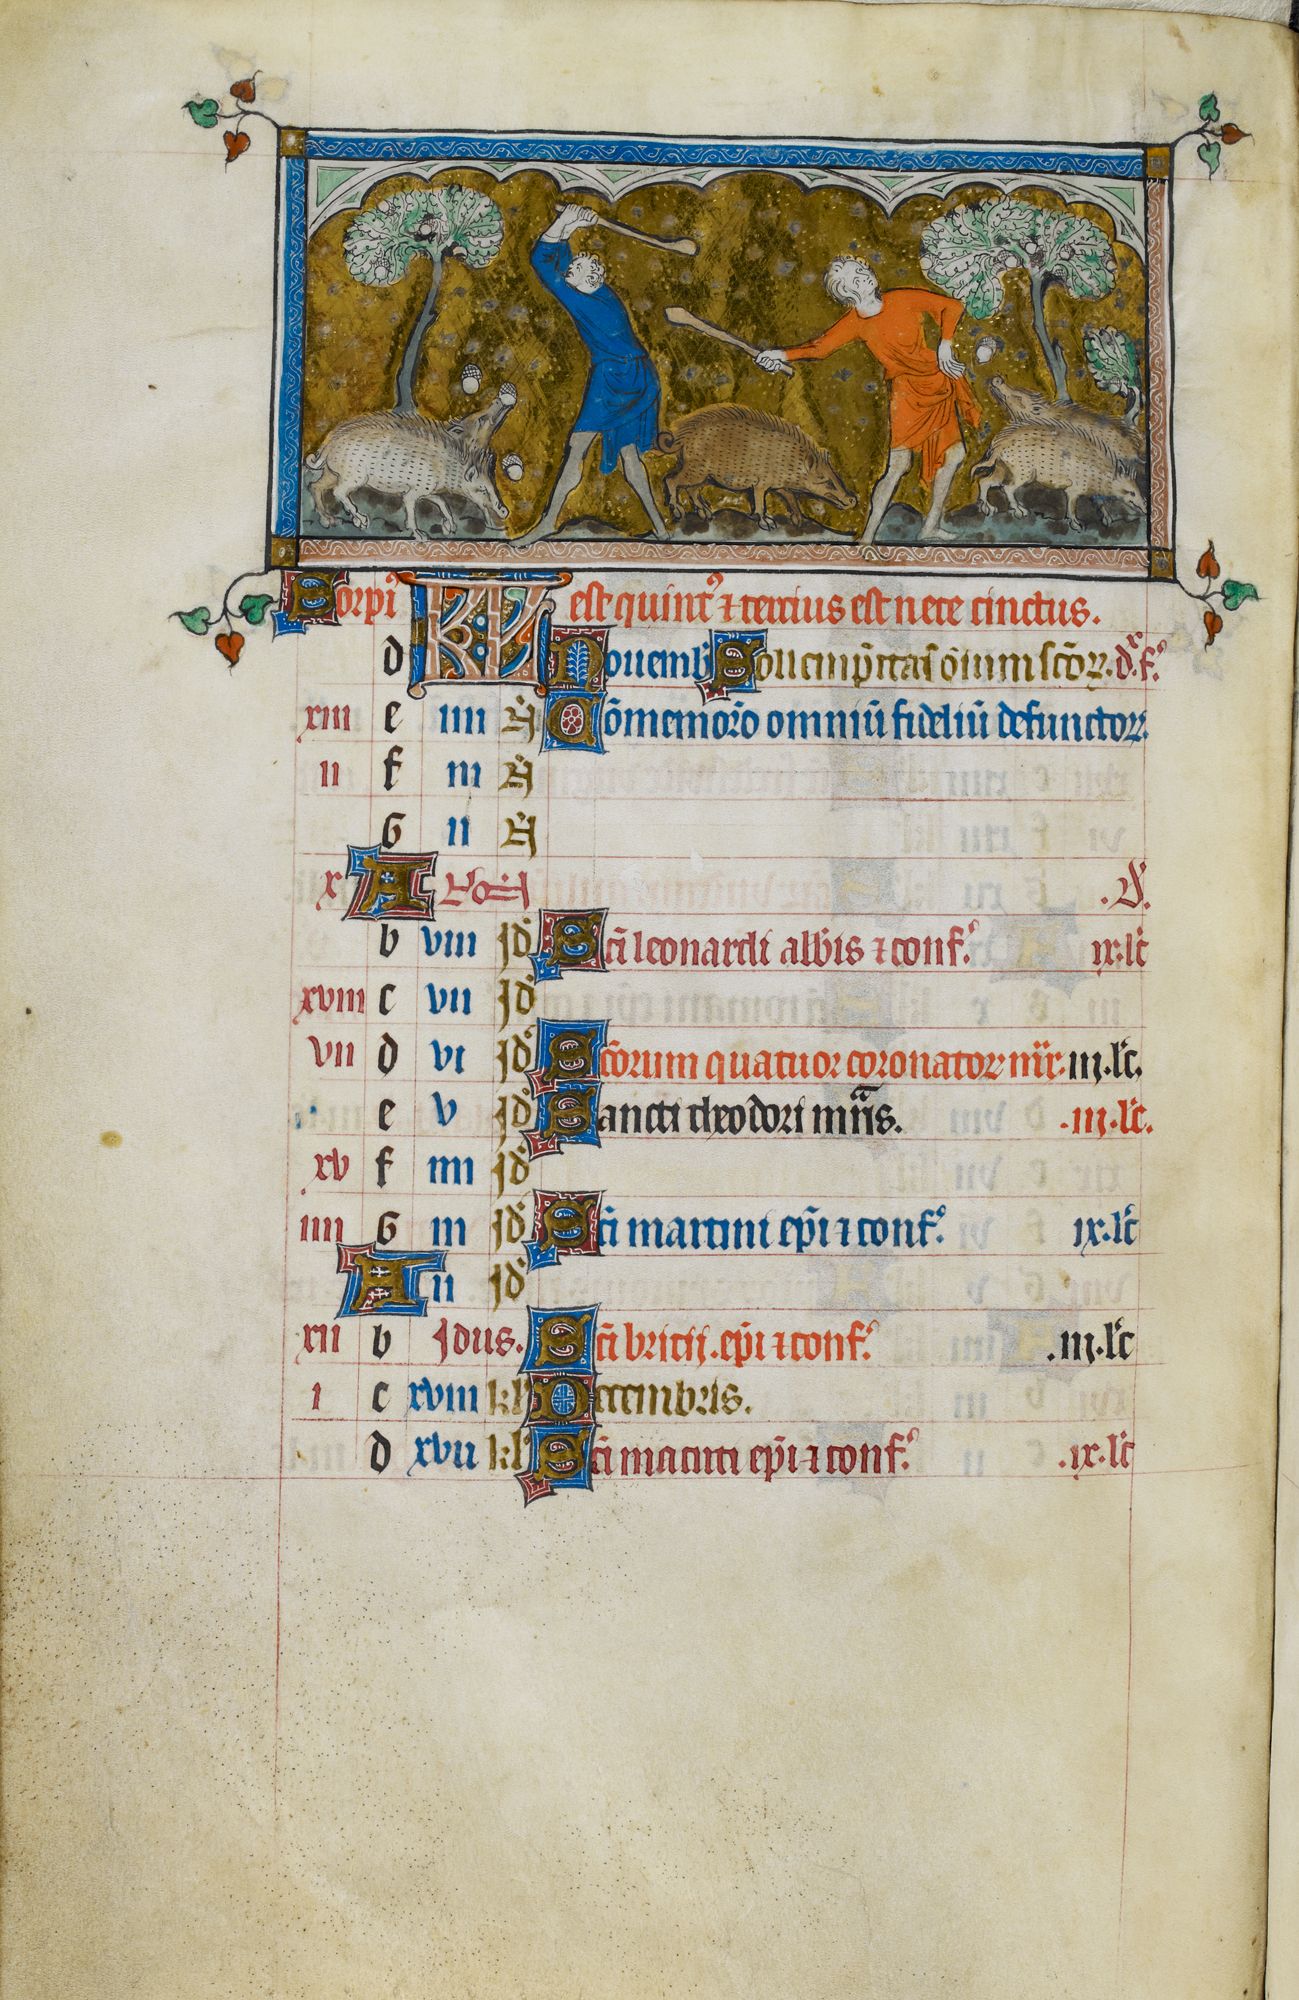 Scorpiꝰ est quintꝰ ⁊ tercius est nece cinctus.
d KL Nouemb Sollempnitas oīum scōꝝ. d'. f.
xiii e iiii N Cōmemoro omniū fideliū defunctoꝝ.
ii f iii N
G ii N
x A Non .D.
b viii Id Sci leonardi abbis ⁊ conf. ix. lc
xviii c vii Id
vii d vi Id Scorum quatuor coronatoꝝ mr. iij. lc.
e v Id Sancti theodori mris. .iij. lc.
xv f iiii Id
iiii G iii Id Sci martini epi ⁊ conf. ix. lc
A ii Id
xii b Idus. Sci bricij. epi ⁊ conf. .iij. lc
i c xviii kl Decembris.
d xvii kl Sci macuti epi ⁊ conf. .ix. lc